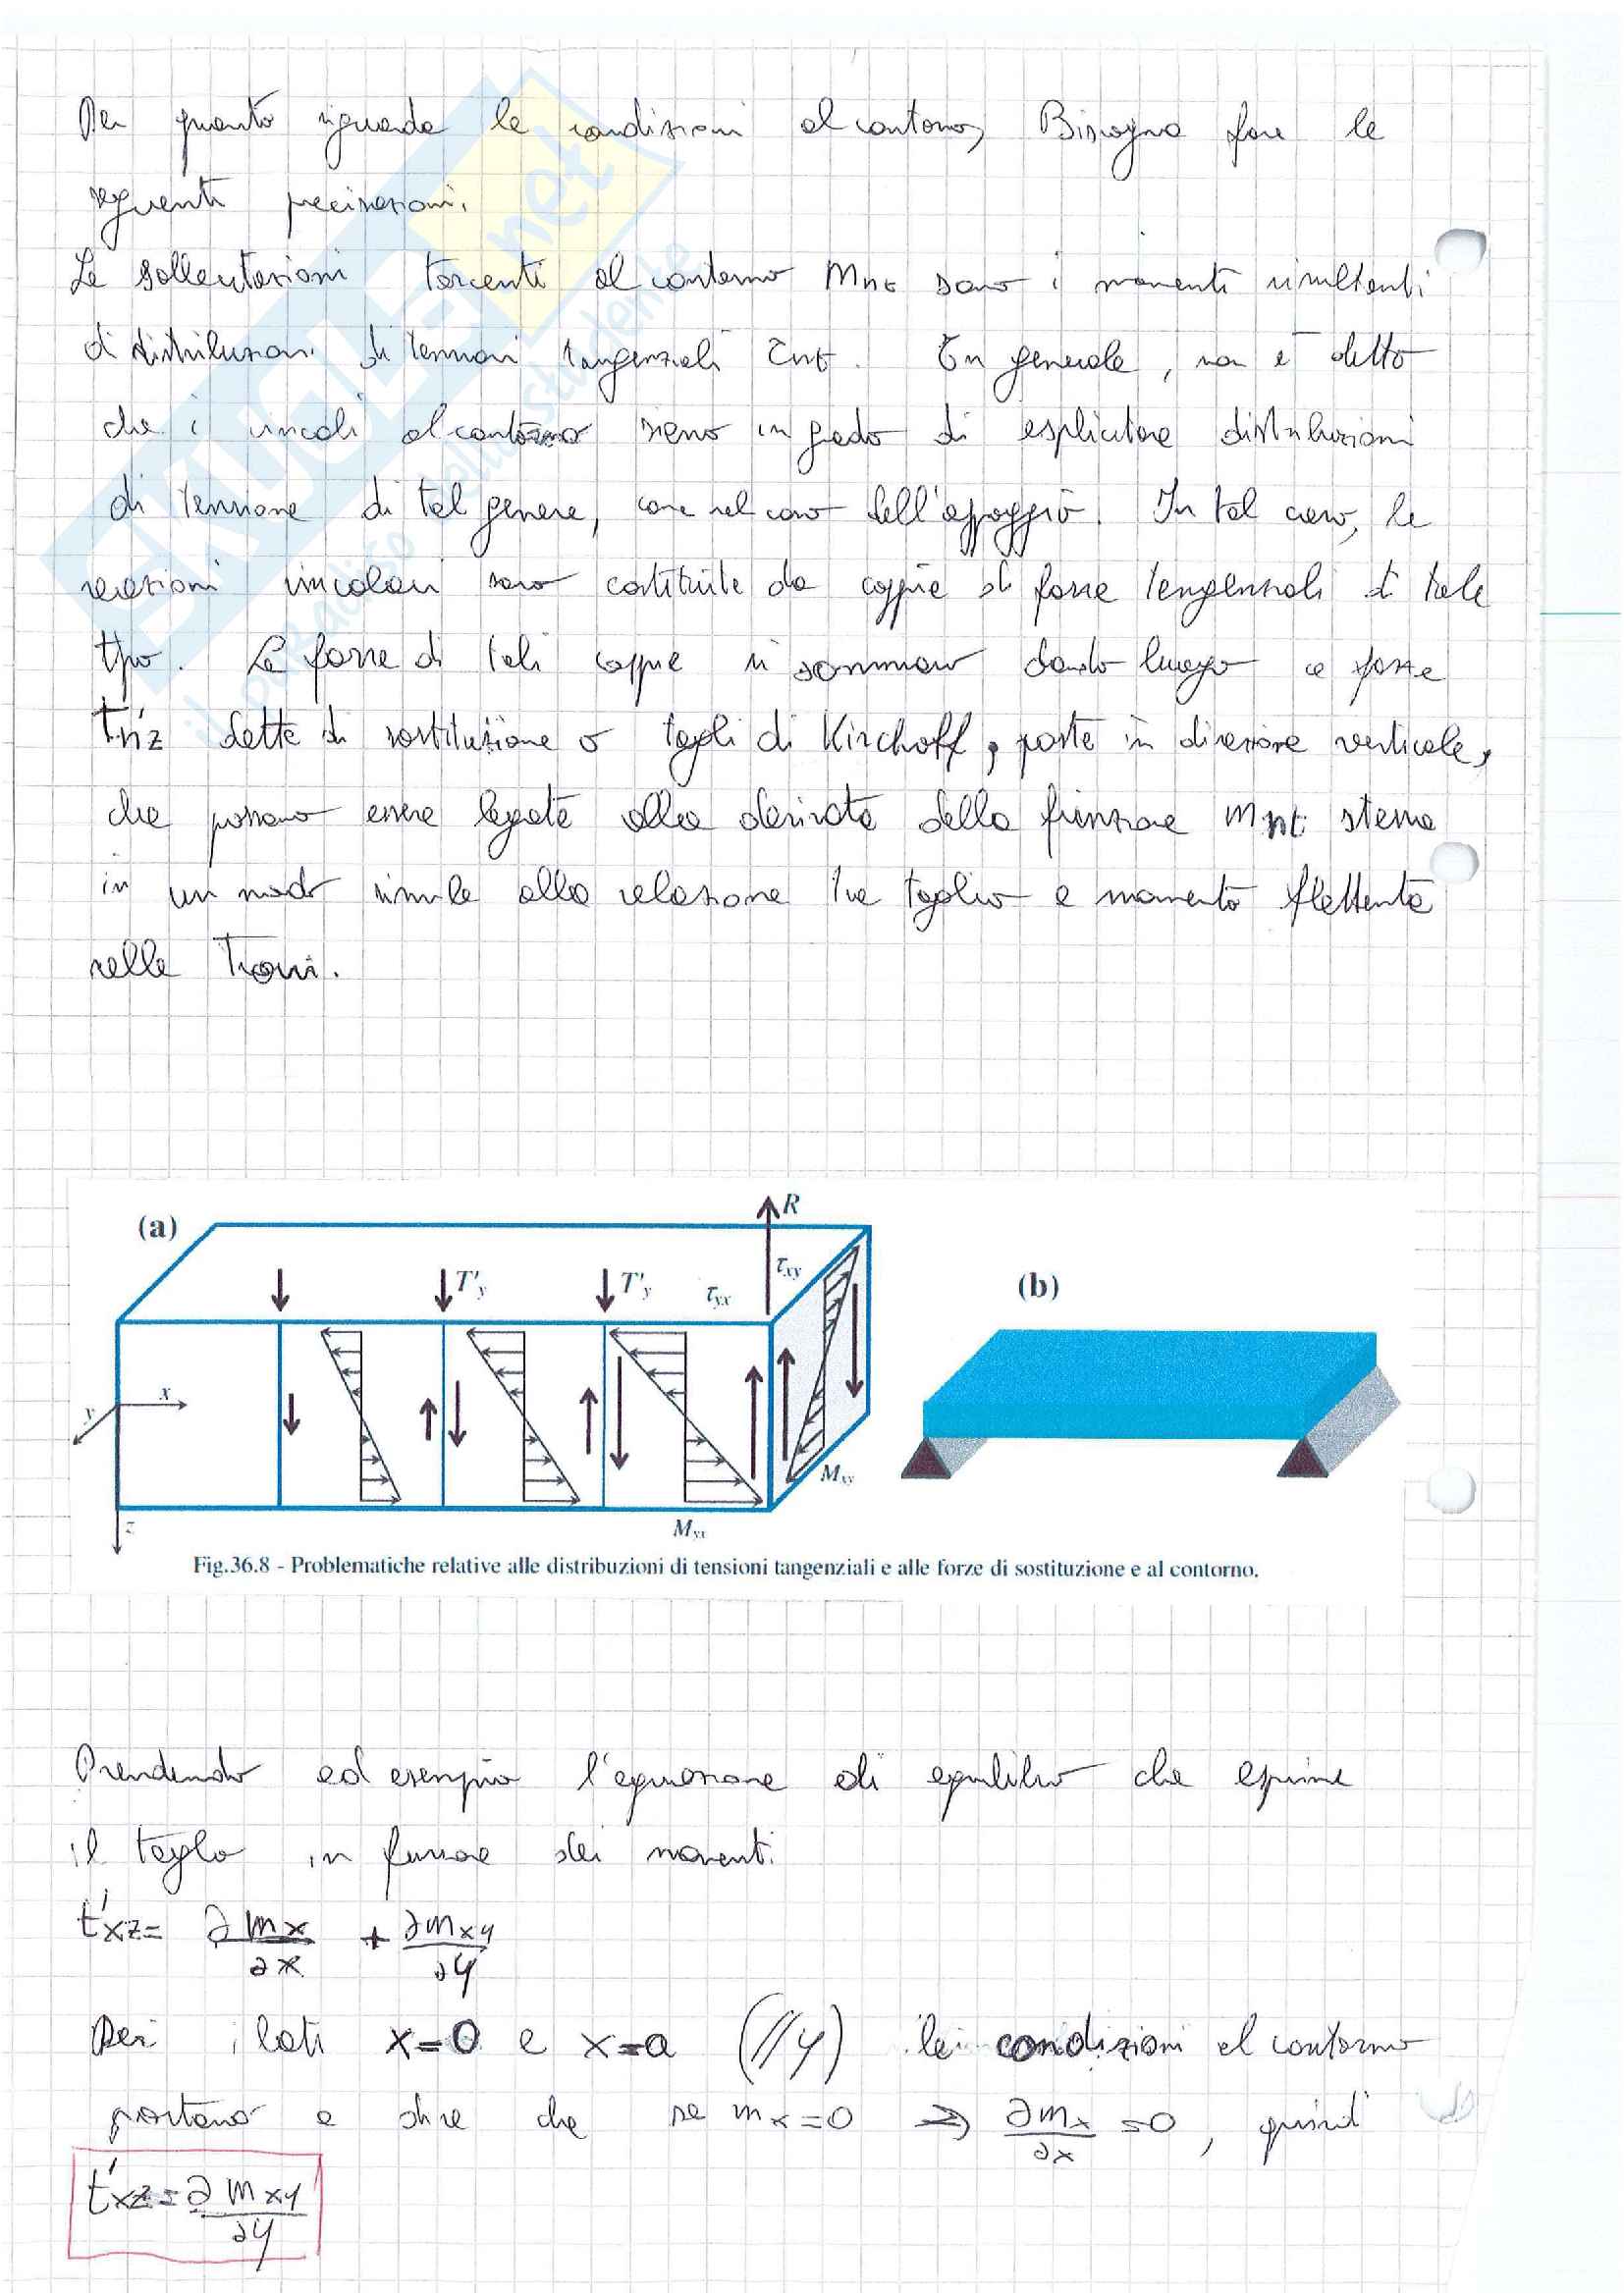 Per quanto riguarda le condizioni al contorno, Bisogna fare le
seguenti precisazioni.
Le sollecitazioni torcenti al contorno Mnt sono i momenti risultanti
di distribuzioni di tensioni tangenziali τnt. In generale, non è detto
che i vincoli al contorno siano in grado di esplicitare distribuzioni
di tensione di tal genere, come nel caso dell'appoggio. In tal caso, le
reazioni vincolari sono costituite da coppie di forze tangenziali di tale
tipo. Le forze di tali coppie si sommano dando luogo a forze
T'nz dette di sostituzione o tagli di Kirchoff, poste in direzione verticale,
che possono essere legate alla derivata della funzione mnt stessa
in un modo simile alla relazione tra taglio e momento flettente
nelle Travi.
(a)
R
τxy
T'y
T'y
τyx
(b)
x
y
Mxy
z
Myx
Fig.36.8 - Problematiche relative alle distribuzioni di tensioni tangenziali e alle forze di sostituzione e al contorno.
Prendendo ad esempio l'equazione di equilibrio che esprime
il taglio in funzione dei momenti.
t'xz = ∂mx/∂x + ∂mxy/∂y
Per i lati x=0 e x=a (//y) le condizioni al contorno
portano a dire che se mx=0 => ∂mx/∂x =0, quindi
t'xz = ∂mxy/∂y